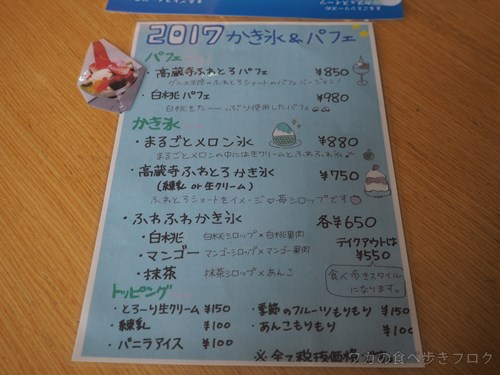 2017 かき氷&パフェ
パフェ
・高蔵寺ふわとろパフェ ¥850
・白桃パフェ ¥980
白桃をたーーっぷり使用したパフェ
かき氷
・まるごとメロン氷 ¥880
まるごとメロンの中には生クリームとふわふわ氷
・高蔵寺ふわとろかき氷 ¥750
(練乳 or 生クリーム)
ふわとろショートをイメージ♡苺シロップです
・ふわふわかき氷 各¥650
・白桃 白桃シロップ×白桃果肉
・マンゴー マンゴーシロップ×マンゴー果肉
・抹茶 抹茶シロップ×あんこ
テイクアウトは
¥550
食べ歩きスタイル
になります。
トッピング
・とろーり生クリーム ¥150
・季節のフルーツもりもり ¥150
・練乳 ¥100
・あんこもりもり ¥100
・バニラアイス ¥100
※全て税抜価格
ワカの食べ歩きブログ